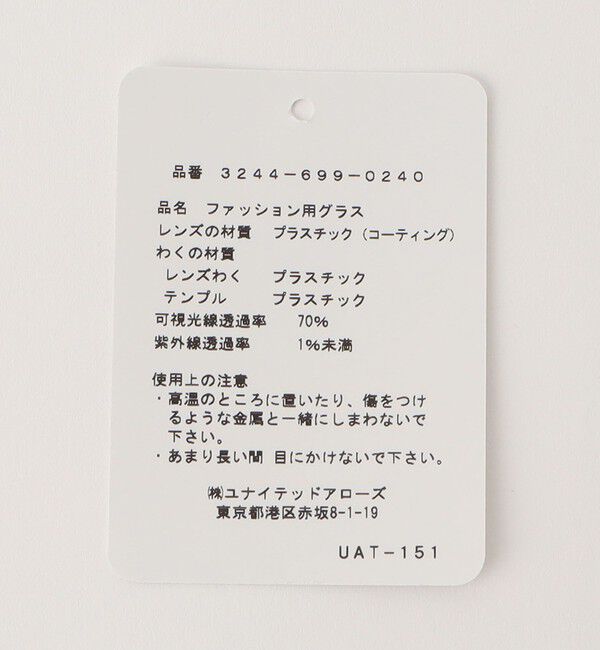 品番 3244-699-0240
品名 ファッション用グラス
レンズの材質 プラスチック（コーティング）
わくの材質
レンズわく プラスチック
テンプル プラスチック
可視光線透過率 70%
紫外線透過率 1%未満
使用上の注意
・高温のところに置いたり、傷をつけ
るような金属と一緒にしまわないで
下さい。
・あまり長い間 目にかけないで下さい。
㈱ユナイテッドアローズ
東京都港区赤坂8-1-19
UAT-151